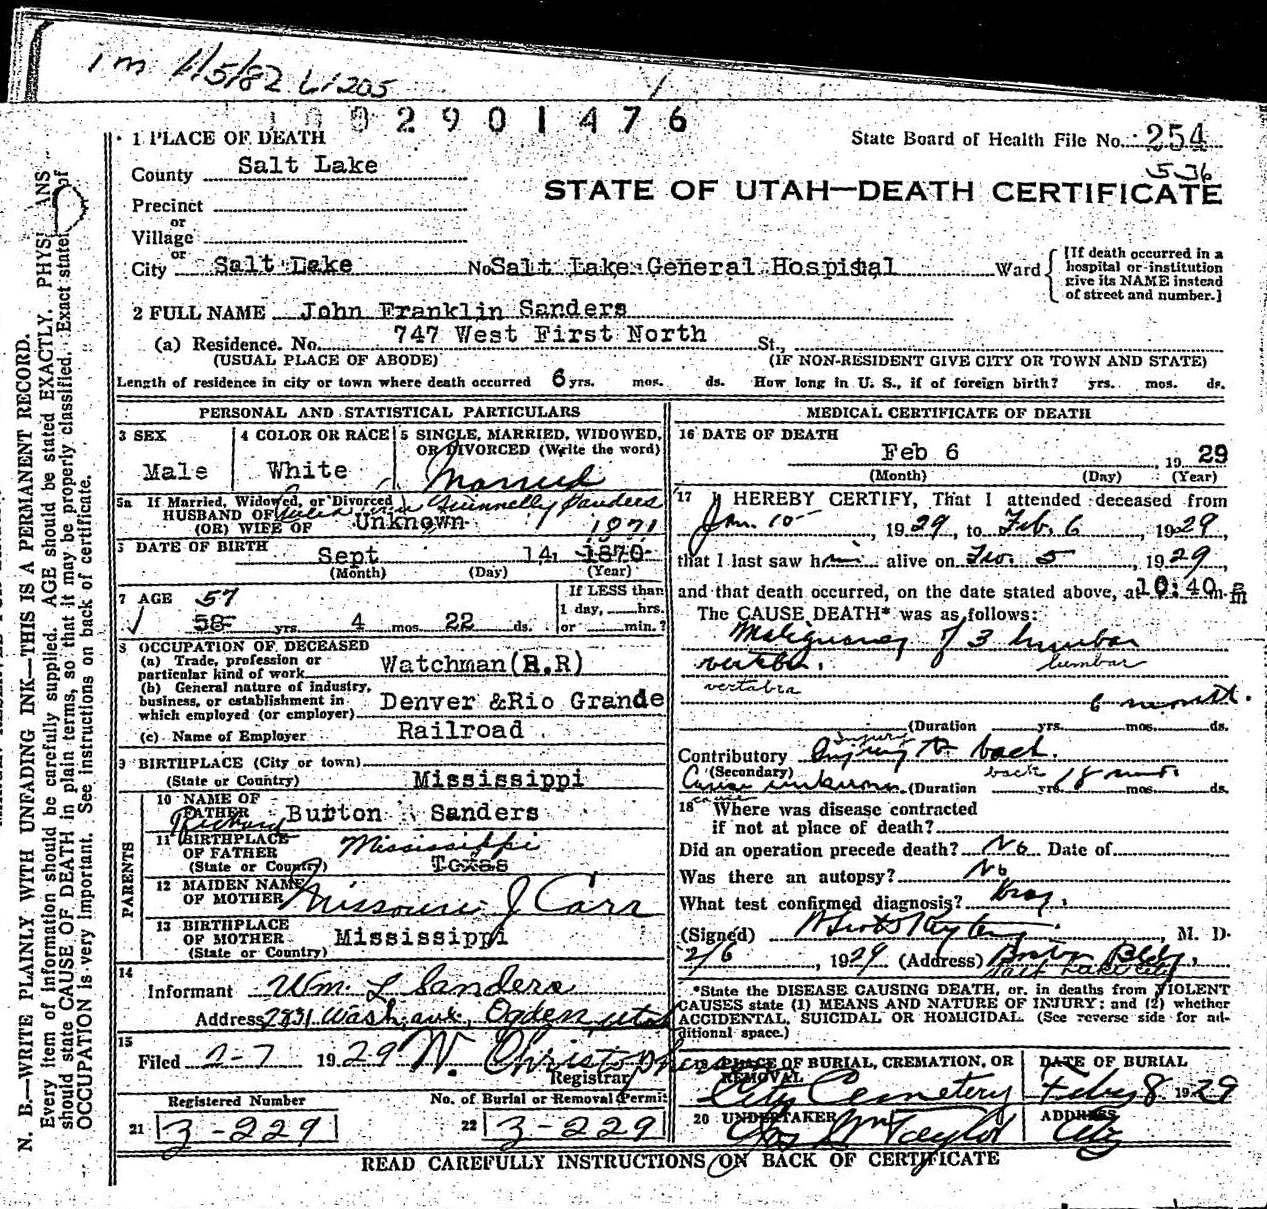 1 m 1/5/82 61205
2901476
1 PLACE OF DEATH
State Board of Health File No. 254
536
County Salt Lake
STATE OF UTAH—DEATH CERTIFICATE
Precinct
or
Village
or
City Salt Lake No. Salt Lake General Hospital Ward
[If death occurred in a hospital or institution give its NAME instead of street and number.]
2 FULL NAME John Franklin Sanders
(a) Residence. No. 747 West First North St.,
(USUAL PLACE OF ABODE) (IF NON-RESIDENT GIVE CITY OR TOWN AND STATE)
Length of residence in city or town where death occurred 6 yrs. mos. ds. How long in U. S., if of foreign birth? yrs. mos. ds.
PERSONAL AND STATISTICAL PARTICULARS
3 SEX
Male
4 COLOR OR RACE
White
5 SINGLE, MARRIED, WIDOWED,
OR DIVORCED (Write the word)
Married
5a If Married, Widowed, or Divorced
HUSBAND OF Gunnelly Sanders
(OR) WIFE OF Unknown
1871
6 DATE OF BIRTH
Sept 14, 1870
(Month) (Day) (Year)
7 AGE 57
58 yrs 4 mos. 22 ds.
If LESS than
1 day, hrs.
or min.?
8 OCCUPATION OF DECEASED
(a) Trade, profession or
particular kind of work Watchman(R.R)
(b) General nature of industry,
business, or establishment in
which employed (or employer) Denver &Rio Grande
(c) Name of Employer Railroad
9 BIRTHPLACE (City or town)
(State or Country) Mississippi
PARENTS
10 NAME OF
FATHER Richard Burton Sanders
11 BIRTHPLACE
OF FATHER Mississippi
(State or Country) Texas
12 MAIDEN NAME
OF MOTHER Missouri J Carr
13 BIRTHPLACE
OF MOTHER Mississippi
(State or Country)
14
Informant Wm. L Sanders
Address 2831 Wash. ave, Ogden, Utah
15
Filed 2-7 1929 W. Christophersen
Registrar
Registered Number
No. of Burial or Removal Permit
21 3-229
22 3-229
MEDICAL CERTIFICATE OF DEATH
16 DATE OF DEATH
Feb 6 1929
(Month) (Day) (Year)
17 I HEREBY CERTIFY, That I attended deceased from
Jan. 10 1929, to Feb. 6 1929,
that I last saw him alive on 5, 1929
and that death occurred, on the date stated above, at 10:40 m.
The CAUSE DEATH* was as follows:
Malignancy of 3 lumbar
verteb. lumbar
vertabra
6 months.
(Duration yrs. mos. ds.
Injury
Contributory Injury to back.
(Secondary) back
Cause unknown. (Duration 18 yrs. mos. ds.
cause
18 Where was disease contracted
if not at place of death?
Did an operation precede death? No Date of
Was there an autopsy? No
What test confirmed diagnosis? Xray,
(Signed) M. D.
2/6, 1929 (Address) Boston Bldg,
Salt Lake City
*State the DISEASE CAUSING DEATH, or, in deaths from VIOLENT
CAUSES state (1) MEANS AND NATURE OF INJURY; and (2) whether
ACCIDENTAL, SUICIDAL OR HOMICIDAL. (See reverse side for ad-
ditional space.)
19 PLACE OF BURIAL, CREMATION, OR
REMOVAL
City Cemetery
DATE OF BURIAL
Feby 8 1929
20 UNDERTAKER
Jos Wm Taylor
ADDRESS
City
READ CAREFULLY INSTRUCTIONS ON BACK OF CERTIFICATE
N. B.—WRITE PLAINLY WITH UNFADING INK—THIS IS A PERMANENT RECORD.
Every item of information should be carefully supplied. AGE should be stated EXACTLY. PHYSICIANS
should state CAUSE OF DEATH in plain terms, so that it may be properly classified. Exact statement of
OCCUPATION is very important. See instructions on back of certificate.